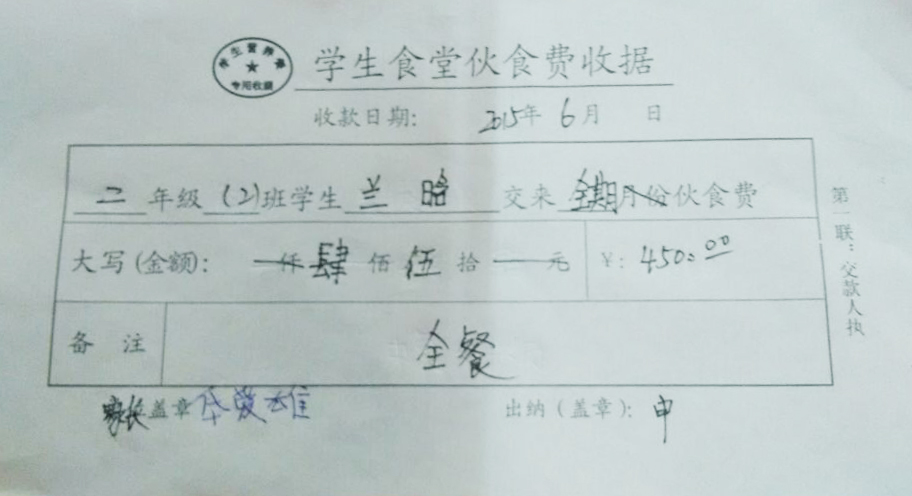 学生营养餐
专用收据
学生食堂伙食费收据
收款日期: 2015年 6月 日
二年级(2)班学生 兰 昭 交来全期月份伙食费
大写(金额): 仟肆佰伍拾 元 ¥: 450.00
备 注 全餐
家长盖章
出纳(盖章): 申
第一联:交款人执